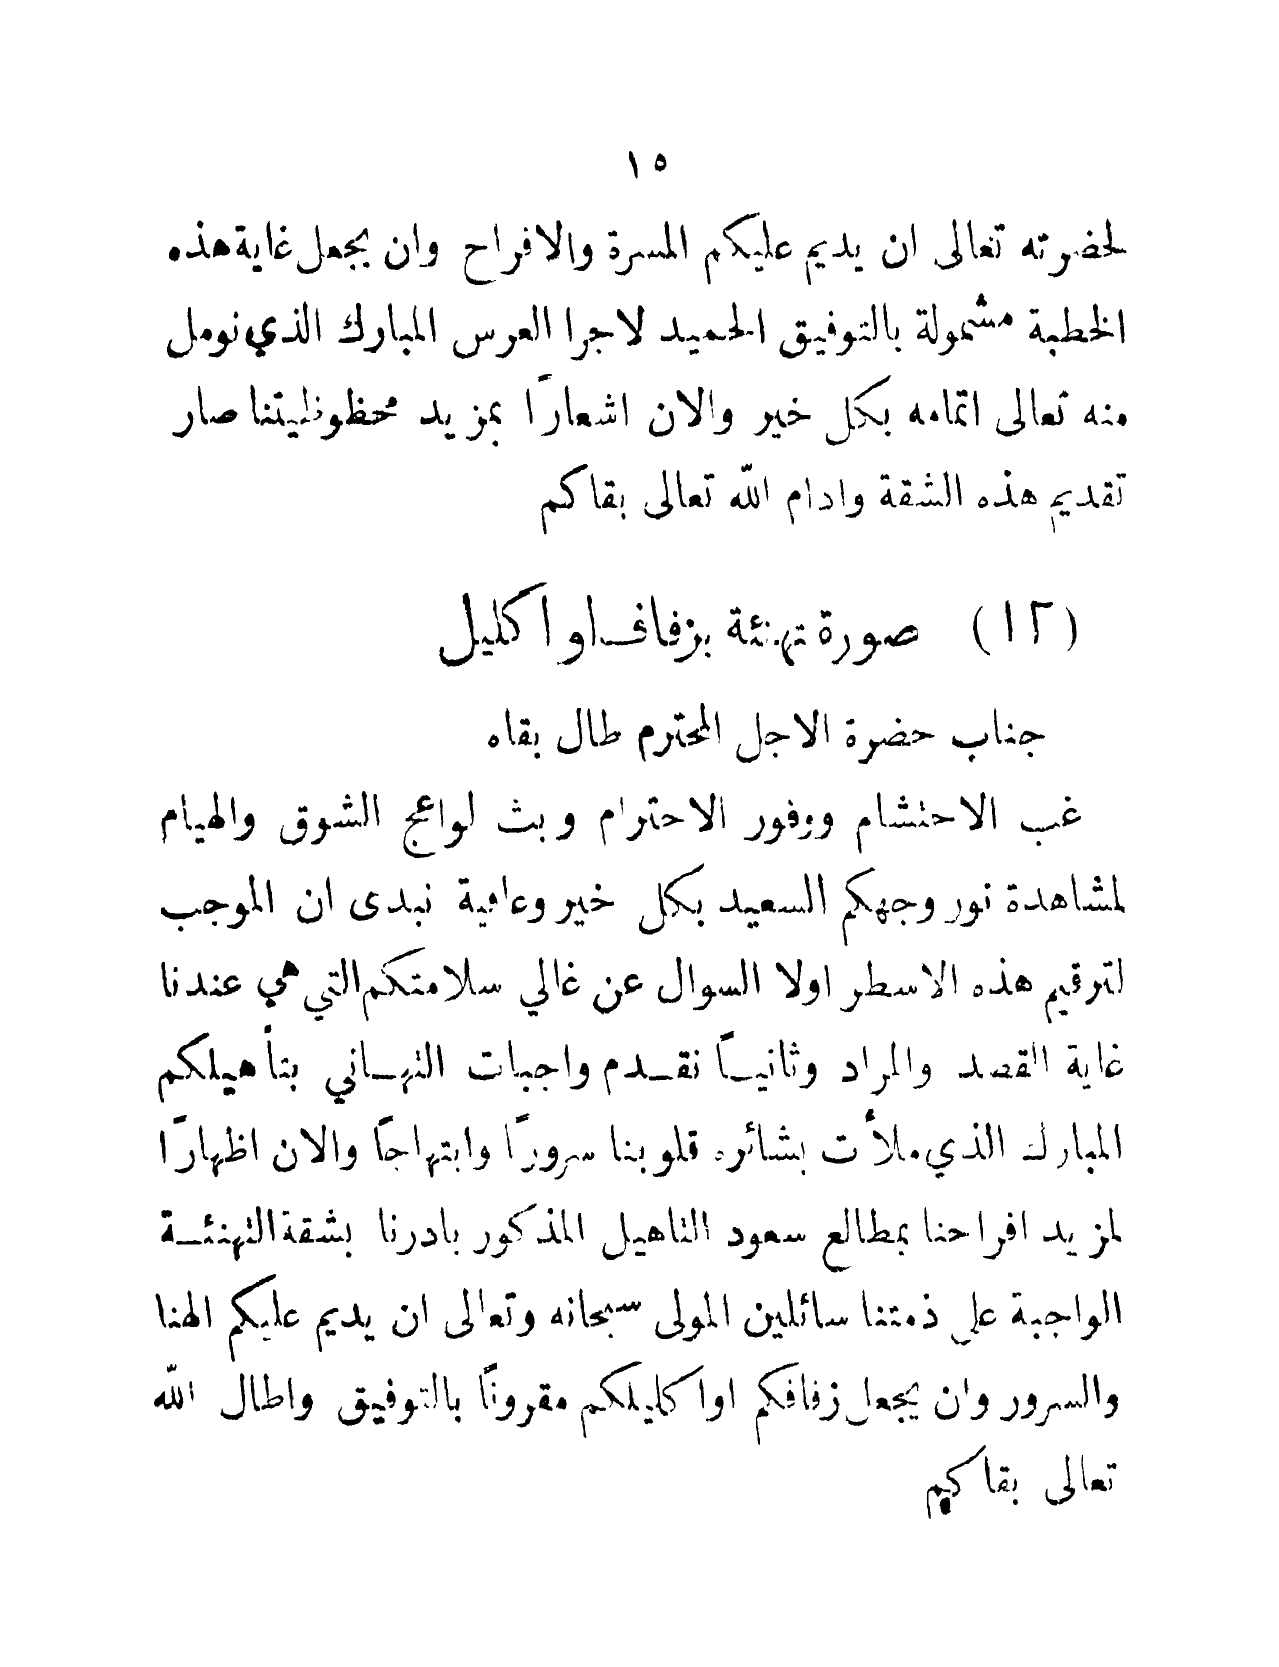 ١٥
لحضرته تعالى ان يديم عليكم المسرة والافراح وان يجعل غاية هذه
الخطبة مشمولة بالتوفيق الحميد لاجرا العرس المبارك الذي نومل
منه تعالى اتمامه بكل خير والان اشعارًا بمزيد محظوظيتنا صار
تقديم هذه الشقة وادام الله تعالى بقاكم
(١٢) صورة تهنئة بزفاف او اكليل
جناب حضرة الاجل المحترم طال بقاه
غب الاحتشام ووفور الاحترام وبث لواعج الشوق والهيام
لمشاهدة نور وجهكم السعيد بكل خير وعافية نبدى ان الموجب
لترقيم هذه الاسطر اولا السوال عن غالي سلامتكم التي هي عندنا
غاية القصد والمراد وثانيـاً نقـدم واجبات التهـاني بتأهيلكم
المبارك الذي ملأت بشائره قلوبنا سرورًا وابتهاجًا والان اظهارًا
لمزيد افراحنا بمطالع سعود التاهيل المذكور بادرنا بشقة التهنئـة
الواجبة على ذمتنا سائلين المولى سبحانه وتعالى ان يديم عليكم الهنا
والسرور وان يجعل زفافكم او اكليلكم مقرونًا بالتوفيق واطال الله
تعالى بقاكم